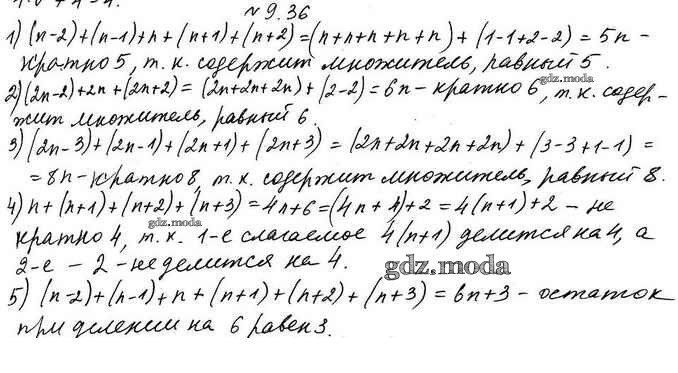 №9.36
1) (n-2)+(n-1)+n+(n+1)+(n+2)=(n+n+n+n+n)+(1-1+2-2)=5n-
кратно 5, т.к. содержит множитель, равный 5.
gdz.moda
2) (2n-2)+2n+(2n+2)=(2n+2n+2n)+(2-2)=6n-кратно 6, т.к. содер-
жит множитель, равный 6.
3) (2n-3)+(2n-1)+(2n+1)+(2n+3)=(2n+2n+2n+2n)+(3-3+1-1)=
=8n-кратно 8, т.к. содержит множитель, равный 8.
4) n+(n+1)+(n+2)+(n+3)=4n+6=(4n+4)+2=4(n+1)+2-не
gdz.moda
кратно 4, т.к. 1-е слагаемое 4(n+1) делится на 4, а
2-е - 2 - не делится на 4.
gdz.moda
5) (n-2)+(n-1)+n+(n+1)+(n+2)+(n+3)=6n+3-остаток
при делении на 6 равен 3.